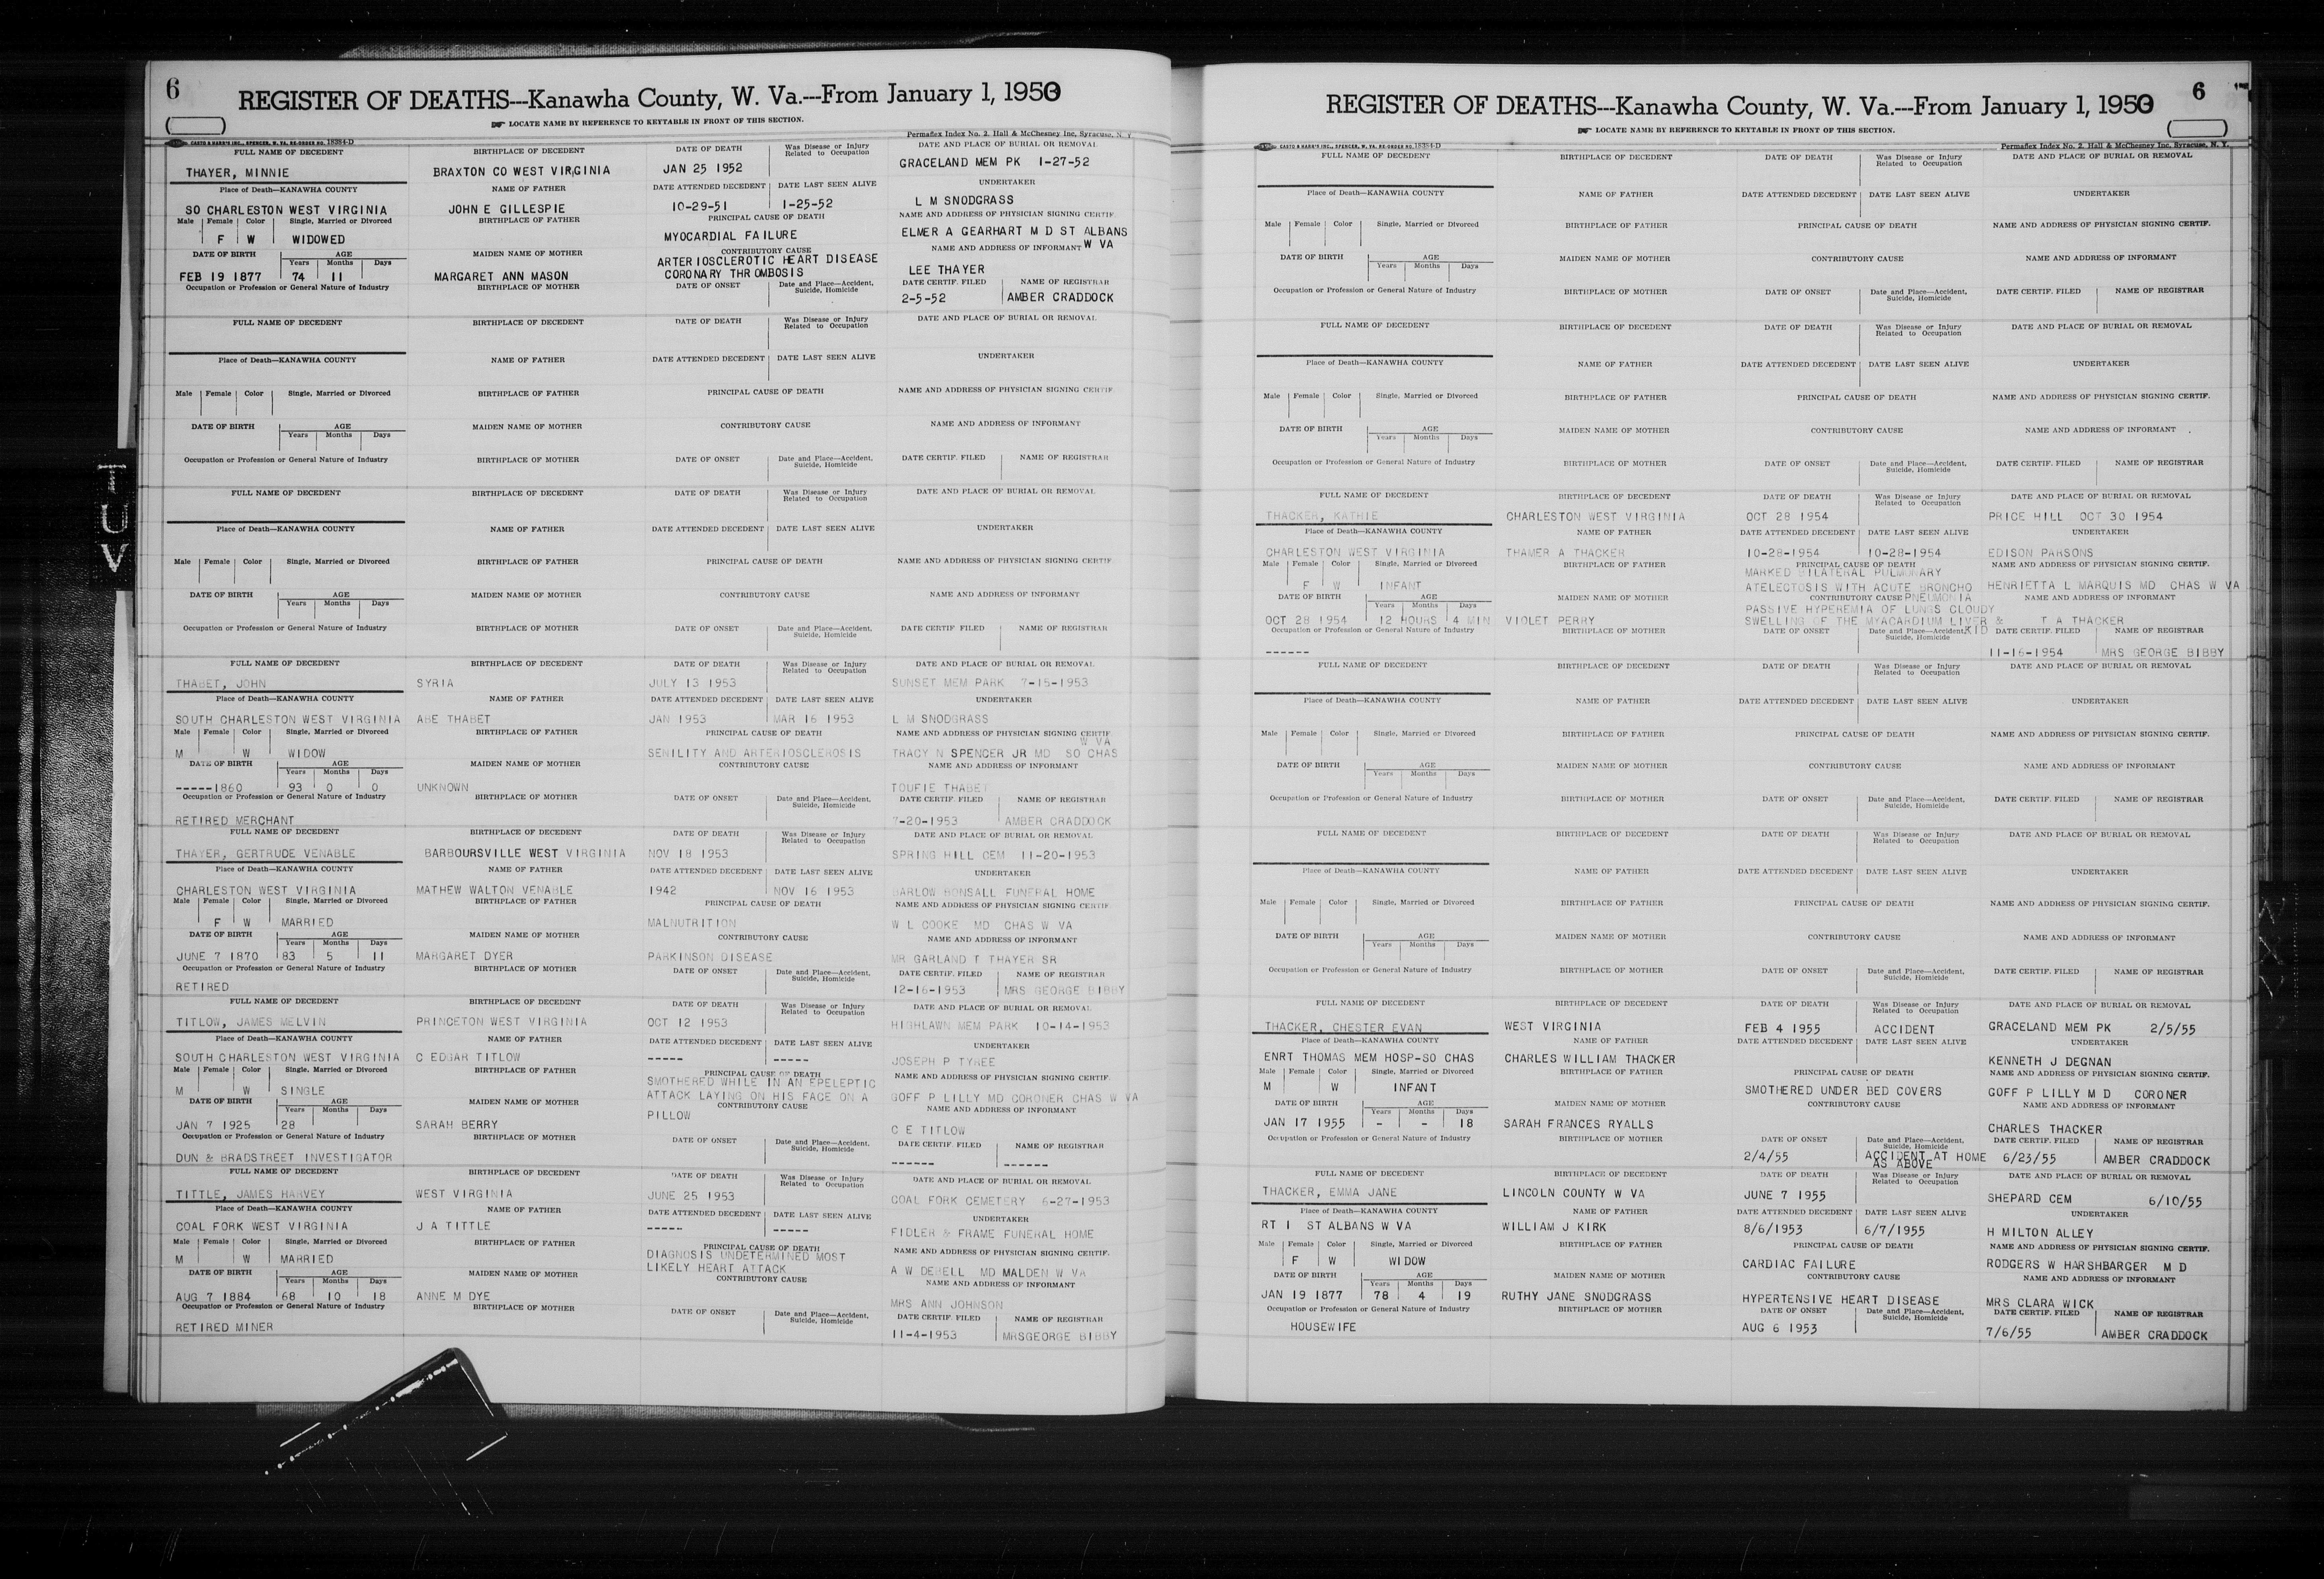 6
REGISTER OF DEATHS---Kanawha County, W. Va.---From January 1, 1950
LOCATE NAME BY REFERENCE TO KEYTABLE IN FRONT OF THIS SECTION.
CASTO & HARRIS INC., SPENCER, W. VA. RE-ORDER NO. 18384-D
Permaflex Index No. 2. Hall & McChesney Inc, Syracuse, N. Y.
FULL NAME OF DECEDENT BIRTHPLACE OF DECEDENT DATE OF DEATH Was Disease or Injury Related to Occupation DATE AND PLACE OF BURIAL OR REMOVAL
THAYER, MINNIE BRAXTON CO WEST VIRGINIA JAN 25 1952 GRACELAND MEM PK 1-27-52
Place of Death—KANAWHA COUNTY NAME OF FATHER DATE ATTENDED DECEDENT DATE LAST SEEN ALIVE UNDERTAKER
SO CHARLESTON WEST VIRGINIA JOHN E GILLESPIE 10-29-51 1-25-52 L M SNODGRASS
Male Female Color Single, Married or Divorced BIRTHPLACE OF FATHER PRINCIPAL CAUSE OF DEATH NAME AND ADDRESS OF PHYSICIAN SIGNING CERTIF.
F W WIDOWED MYOCARDIAL FAILURE ELMER A GEARHART M D ST ALBANS W VA
DATE OF BIRTH AGE Years Months Days MAIDEN NAME OF MOTHER CONTRIBUTORY CAUSE NAME AND ADDRESS OF INFORMANT
FEB 19 1877 74 11 MARGARET ANN MASON ARTERIOSCLEROTIC HEART DISEASE CORONARY THROMBOSIS LEE THAYER
Occupation or Profession or General Nature of Industry BIRTHPLACE OF MOTHER DATE OF ONSET Date and Place—Accident, Suicide, Homicide DATE CERTIF. FILED NAME OF REGISTRAR
2-5-52 AMBER CRADDOCK
FULL NAME OF DECEDENT BIRTHPLACE OF DECEDENT DATE OF DEATH Was Disease or Injury Related to Occupation DATE AND PLACE OF BURIAL OR REMOVAL
Place of Death—KANAWHA COUNTY NAME OF FATHER DATE ATTENDED DECEDENT DATE LAST SEEN ALIVE UNDERTAKER
Male Female Color Single, Married or Divorced BIRTHPLACE OF FATHER PRINCIPAL CAUSE OF DEATH NAME AND ADDRESS OF PHYSICIAN SIGNING CERTIF.
DATE OF BIRTH AGE Years Months Days MAIDEN NAME OF MOTHER CONTRIBUTORY CAUSE NAME AND ADDRESS OF INFORMANT
Occupation or Profession or General Nature of Industry BIRTHPLACE OF MOTHER DATE OF ONSET Date and Place—Accident, Suicide, Homicide DATE CERTIF. FILED NAME OF REGISTRAR
FULL NAME OF DECEDENT BIRTHPLACE OF DECEDENT DATE OF DEATH Was Disease or Injury Related to Occupation DATE AND PLACE OF BURIAL OR REMOVAL
Place of Death—KANAWHA COUNTY NAME OF FATHER DATE ATTENDED DECEDENT DATE LAST SEEN ALIVE UNDERTAKER
Male Female Color Single, Married or Divorced BIRTHPLACE OF FATHER PRINCIPAL CAUSE OF DEATH NAME AND ADDRESS OF PHYSICIAN SIGNING CERTIF.
DATE OF BIRTH AGE Years Months Days MAIDEN NAME OF MOTHER CONTRIBUTORY CAUSE NAME AND ADDRESS OF INFORMANT
Occupation or Profession or General Nature of Industry BIRTHPLACE OF MOTHER DATE OF ONSET Date and Place—Accident, Suicide, Homicide DATE CERTIF. FILED NAME OF REGISTRAR
FULL NAME OF DECEDENT BIRTHPLACE OF DECEDENT DATE OF DEATH Was Disease or Injury Related to Occupation DATE AND PLACE OF BURIAL OR REMOVAL
THABET, JOHN SYRIA JULY 13 1953 SUNSET MEM PARK 7-15-1953
Place of Death—KANAWHA COUNTY NAME OF FATHER DATE ATTENDED DECEDENT DATE LAST SEEN ALIVE UNDERTAKER
SOUTH CHARLESTON WEST VIRGINIA ABE THABET JAN 1953 MAR 16 1953 L M SNODGRASS
Male Female Color Single, Married or Divorced BIRTHPLACE OF FATHER PRINCIPAL CAUSE OF DEATH NAME AND ADDRESS OF PHYSICIAN SIGNING CERTIF.
M W WIDOW SENILITY AND ARTERIOSCLEROSIS TRACY N SPENCER JR MD SO CHAS W VA
DATE OF BIRTH AGE Years Months Days MAIDEN NAME OF MOTHER CONTRIBUTORY CAUSE NAME AND ADDRESS OF INFORMANT
-----1860 93 0 0 UNKNOWN TOUFIE THABET
Occupation or Profession or General Nature of Industry BIRTHPLACE OF MOTHER DATE OF ONSET Date and Place—Accident, Suicide, Homicide DATE CERTIF. FILED NAME OF REGISTRAR
RETIRED MERCHANT 7-20-1953 AMBER CRADDOCK
FULL NAME OF DECEDENT BIRTHPLACE OF DECEDENT DATE OF DEATH Was Disease or Injury Related to Occupation DATE AND PLACE OF BURIAL OR REMOVAL
THAYER, GERTRUDE VENABLE BARBOURSVILLE WEST VIRGINIA NOV 18 1953 SPRING HILL CEM 11-20-1953
Place of Death—KANAWHA COUNTY NAME OF FATHER DATE ATTENDED DECEDENT DATE LAST SEEN ALIVE UNDERTAKER
CHARLESTON WEST VIRGINIA MATHEW WALTON VENABLE 1942 NOV 16 1953 BARLOW BONSALL FUNERAL HOME
Male Female Color Single, Married or Divorced BIRTHPLACE OF FATHER PRINCIPAL CAUSE OF DEATH NAME AND ADDRESS OF PHYSICIAN SIGNING CERTIF.
F W MARRIED MALNUTRITION W L COOKE MD CHAS W VA
DATE OF BIRTH AGE Years Months Days MAIDEN NAME OF MOTHER CONTRIBUTORY CAUSE NAME AND ADDRESS OF INFORMANT
JUNE 7 1870 83 5 11 MARGARET DYER PARKINSON DISEASE MR GARLAND T THAYER SR
Occupation or Profession or General Nature of Industry BIRTHPLACE OF MOTHER DATE OF ONSET Date and Place—Accident, Suicide, Homicide DATE CERTIF. FILED NAME OF REGISTRAR
RETIRED 12-16-1953 MRS GEORGE BIBBY
FULL NAME OF DECEDENT BIRTHPLACE OF DECEDENT DATE OF DEATH Was Disease or Injury Related to Occupation DATE AND PLACE OF BURIAL OR REMOVAL
TITLOW, JAMES MELVIN PRINCETON WEST VIRGINIA OCT 12 1953 HIGHLAWN MEM PARK 10-14-1953
Place of Death—KANAWHA COUNTY NAME OF FATHER DATE ATTENDED DECEDENT DATE LAST SEEN ALIVE UNDERTAKER
SOUTH CHARLESTON WEST VIRGINIA C EDGAR TITLOW ----- ----- JOSEPH P TYREE
Male Female Color Single, Married or Divorced BIRTHPLACE OF FATHER PRINCIPAL CAUSE OF DEATH NAME AND ADDRESS OF PHYSICIAN SIGNING CERTIF.
M W SINGLE SMOTHERED WHILE IN AN EPELEPTIC ATTACK LAYING ON HIS FACE ON A PILLOW GOFF P LILLY MD CORONER CHAS W VA
DATE OF BIRTH AGE Years Months Days MAIDEN NAME OF MOTHER CONTRIBUTORY CAUSE NAME AND ADDRESS OF INFORMANT
JAN 7 1925 28 SARAH BERRY C E TITLOW
Occupation or Profession or General Nature of Industry BIRTHPLACE OF MOTHER DATE OF ONSET Date and Place—Accident, Suicide, Homicide DATE CERTIF. FILED NAME OF REGISTRAR
DUN & BRADSTREET INVESTIGATOR ------ ------
FULL NAME OF DECEDENT BIRTHPLACE OF DECEDENT DATE OF DEATH Was Disease or Injury Related to Occupation DATE AND PLACE OF BURIAL OR REMOVAL
TITTLE, JAMES HARVEY WEST VIRGINIA JUNE 25 1953 COAL FORK CEMETERY 6-27-1953
Place of Death—KANAWHA COUNTY NAME OF FATHER DATE ATTENDED DECEDENT DATE LAST SEEN ALIVE UNDERTAKER
COAL FORK WEST VIRGINIA J A TITTLE ----- ----- FIDLER & FRAME FUNERAL HOME
Male Female Color Single, Married or Divorced BIRTHPLACE OF FATHER PRINCIPAL CAUSE OF DEATH NAME AND ADDRESS OF PHYSICIAN SIGNING CERTIF.
M W MARRIED DIAGNOSIS UNDETERMINED MOST LIKELY HEART ATTACK A W MD MALDEN W VA
DATE OF BIRTH AGE Years Months Days MAIDEN NAME OF MOTHER CONTRIBUTORY CAUSE NAME AND ADDRESS OF INFORMANT
AUG 7 1884 68 10 18 ANNE M DYE MRS ANN JOHNSON
Occupation or Profession or General Nature of Industry BIRTHPLACE OF MOTHER DATE OF ONSET Date and Place—Accident, Suicide, Homicide DATE CERTIF. FILED NAME OF REGISTRAR
RETIRED MINER 11-4-1953 MRSGEORGE BIBBY
T
U
V
6
REGISTER OF DEATHS---Kanawha County, W. Va.---From January 1, 1950
LOCATE NAME BY REFERENCE TO KEYTABLE IN FRONT OF THIS SECTION.
CASTO & HARRIS INC., SPENCER, W. VA. RE-ORDER NO. 18384-D
Permaflex Index No. 2. Hall & McChesney Inc, Syracuse, N. Y.
FULL NAME OF DECEDENT BIRTHPLACE OF DECEDENT DATE OF DEATH Was Disease or Injury Related to Occupation DATE AND PLACE OF BURIAL OR REMOVAL
Place of Death—KANAWHA COUNTY NAME OF FATHER DATE ATTENDED DECEDENT DATE LAST SEEN ALIVE UNDERTAKER
Male Female Color Single, Married or Divorced BIRTHPLACE OF FATHER PRINCIPAL CAUSE OF DEATH NAME AND ADDRESS OF PHYSICIAN SIGNING CERTIF.
DATE OF BIRTH AGE Years Months Days MAIDEN NAME OF MOTHER CONTRIBUTORY CAUSE NAME AND ADDRESS OF INFORMANT
Occupation or Profession or General Nature of Industry BIRTHPLACE OF MOTHER DATE OF ONSET Date and Place—Accident, Suicide, Homicide DATE CERTIF. FILED NAME OF REGISTRAR
FULL NAME OF DECEDENT BIRTHPLACE OF DECEDENT DATE OF DEATH Was Disease or Injury Related to Occupation DATE AND PLACE OF BURIAL OR REMOVAL
Place of Death—KANAWHA COUNTY NAME OF FATHER DATE ATTENDED DECEDENT DATE LAST SEEN ALIVE UNDERTAKER
Male Female Color Single, Married or Divorced BIRTHPLACE OF FATHER PRINCIPAL CAUSE OF DEATH NAME AND ADDRESS OF PHYSICIAN SIGNING CERTIF.
DATE OF BIRTH AGE Years Months Days MAIDEN NAME OF MOTHER CONTRIBUTORY CAUSE NAME AND ADDRESS OF INFORMANT
Occupation or Profession or General Nature of Industry BIRTHPLACE OF MOTHER DATE OF ONSET Date and Place—Accident, Suicide, Homicide DATE CERTIF. FILED NAME OF REGISTRAR
FULL NAME OF DECEDENT BIRTHPLACE OF DECEDENT DATE OF DEATH Was Disease or Injury Related to Occupation DATE AND PLACE OF BURIAL OR REMOVAL
THACKER, KATHIE CHARLESTON WEST VIRGINIA OCT 28 1954 PRICE HILL OCT 30 1954
Place of Death—KANAWHA COUNTY NAME OF FATHER DATE ATTENDED DECEDENT DATE LAST SEEN ALIVE UNDERTAKER
CHARLESTON WEST VIRGINIA THAMER A THACKER 10-28-1954 10-28-1954 EDISON PARSONS
Male Female Color Single, Married or Divorced BIRTHPLACE OF FATHER PRINCIPAL CAUSE OF DEATH NAME AND ADDRESS OF PHYSICIAN SIGNING CERTIF.
F W INFANT MARKED BILATERAL PULMONARY ATELECTOSIS WITH ACUTE BRONCHO PNEUMONIA HENRIETTA L MARQUIS MD CHAS W VA
DATE OF BIRTH AGE Years Months Days MAIDEN NAME OF MOTHER CONTRIBUTORY CAUSE NAME AND ADDRESS OF INFORMANT
OCT 28 1954 12 HOURS 4 MIN VIOLET PERRY PASSIVE HYPEREMIA OF LUNGS CLOUDY SWELLING OF THE MYACARDIUM LIVER & KID T A THACKER
Occupation or Profession or General Nature of Industry BIRTHPLACE OF MOTHER DATE OF ONSET Date and Place—Accident, Suicide, Homicide DATE CERTIF. FILED NAME OF REGISTRAR
------ 11-16-1954 MRS GEORGE BIBBY
FULL NAME OF DECEDENT BIRTHPLACE OF DECEDENT DATE OF DEATH Was Disease or Injury Related to Occupation DATE AND PLACE OF BURIAL OR REMOVAL
Place of Death—KANAWHA COUNTY NAME OF FATHER DATE ATTENDED DECEDENT DATE LAST SEEN ALIVE UNDERTAKER
Male Female Color Single, Married or Divorced BIRTHPLACE OF FATHER PRINCIPAL CAUSE OF DEATH NAME AND ADDRESS OF PHYSICIAN SIGNING CERTIF.
DATE OF BIRTH AGE Years Months Days MAIDEN NAME OF MOTHER CONTRIBUTORY CAUSE NAME AND ADDRESS OF INFORMANT
Occupation or Profession or General Nature of Industry BIRTHPLACE OF MOTHER DATE OF ONSET Date and Place—Accident, Suicide, Homicide DATE CERTIF. FILED NAME OF REGISTRAR
FULL NAME OF DECEDENT BIRTHPLACE OF DECEDENT DATE OF DEATH Was Disease or Injury Related to Occupation DATE AND PLACE OF BURIAL OR REMOVAL
Place of Death—KANAWHA COUNTY NAME OF FATHER DATE ATTENDED DECEDENT DATE LAST SEEN ALIVE UNDERTAKER
Male Female Color Single, Married or Divorced BIRTHPLACE OF FATHER PRINCIPAL CAUSE OF DEATH NAME AND ADDRESS OF PHYSICIAN SIGNING CERTIF.
DATE OF BIRTH AGE Years Months Days MAIDEN NAME OF MOTHER CONTRIBUTORY CAUSE NAME AND ADDRESS OF INFORMANT
Occupation or Profession or General Nature of Industry BIRTHPLACE OF MOTHER DATE OF ONSET Date and Place—Accident, Suicide, Homicide DATE CERTIF. FILED NAME OF REGISTRAR
FULL NAME OF DECEDENT BIRTHPLACE OF DECEDENT DATE OF DEATH Was Disease or Injury Related to Occupation DATE AND PLACE OF BURIAL OR REMOVAL
THACKER, CHESTER EVAN WEST VIRGINIA FEB 4 1955 ACCIDENT GRACELAND MEM PK 2/5/55
Place of Death—KANAWHA COUNTY NAME OF FATHER DATE ATTENDED DECEDENT DATE LAST SEEN ALIVE UNDERTAKER
ENRT THOMAS MEM HOSP-SO CHAS CHARLES WILLIAM THACKER KENNETH J DEGNAN
Male Female Color Single, Married or Divorced BIRTHPLACE OF FATHER PRINCIPAL CAUSE OF DEATH NAME AND ADDRESS OF PHYSICIAN SIGNING CERTIF.
M W INFANT SMOTHERED UNDER BED COVERS GOFF P LILLY M D CORONER
DATE OF BIRTH AGE Years Months Days MAIDEN NAME OF MOTHER CONTRIBUTORY CAUSE NAME AND ADDRESS OF INFORMANT
JAN 17 1955 - - 18 SARAH FRANCES RYALLS CHARLES THACKER
Occupation or Profession or General Nature of Industry BIRTHPLACE OF MOTHER DATE OF ONSET Date and Place—Accident, Suicide, Homicide DATE CERTIF. FILED NAME OF REGISTRAR
2/4/55 ACCIDENT AT HOME AS ABOVE 6/23/55 AMBER CRADDOCK
FULL NAME OF DECEDENT BIRTHPLACE OF DECEDENT DATE OF DEATH Was Disease or Injury Related to Occupation DATE AND PLACE OF BURIAL OR REMOVAL
THACKER, EMMA JANE LINCOLN COUNTY W VA JUNE 7 1955 SHEPARD CEM 6/10/55
Place of Death—KANAWHA COUNTY NAME OF FATHER DATE ATTENDED DECEDENT DATE LAST SEEN ALIVE UNDERTAKER
RT 1 ST ALBANS W VA WILLIAM J KIRK 8/6/1953 6/7/1955 H MILTON ALLEY
Male Female Color Single, Married or Divorced BIRTHPLACE OF FATHER PRINCIPAL CAUSE OF DEATH NAME AND ADDRESS OF PHYSICIAN SIGNING CERTIF.
F W WIDOW CARDIAC FAILURE RODGERS W HARSHBARGER M D
DATE OF BIRTH AGE Years Months Days MAIDEN NAME OF MOTHER CONTRIBUTORY CAUSE NAME AND ADDRESS OF INFORMANT
JAN 19 1877 78 4 19 RUTHY JANE SNODGRASS HYPERTENSIVE HEART DISEASE MRS CLARA WICK
Occupation or Profession or General Nature of Industry BIRTHPLACE OF MOTHER DATE OF ONSET Date and Place—Accident, Suicide, Homicide DATE CERTIF. FILED NAME OF REGISTRAR
HOUSEWIFE AUG 6 1953 7/6/55 AMBER CRADDOCK